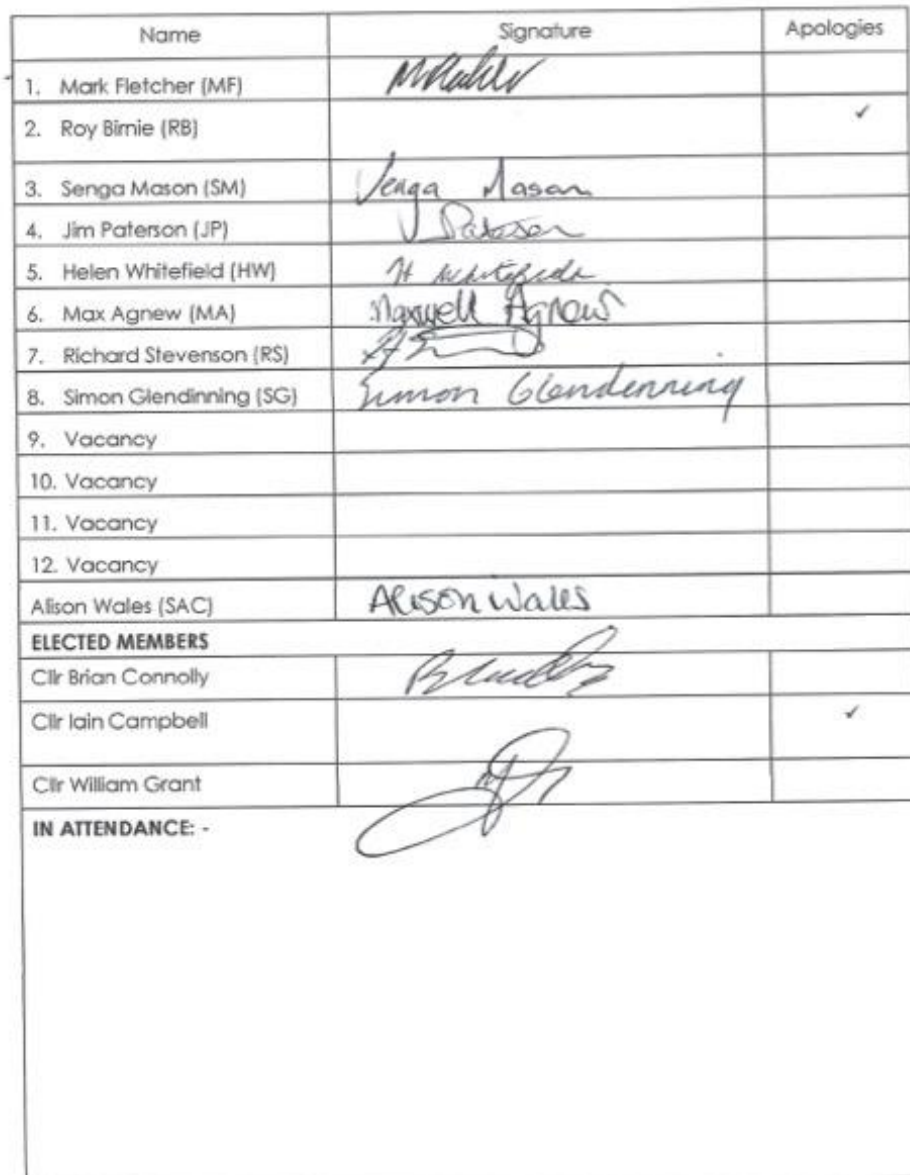 Name Signature Apologies
1. Mark Fletcher (MF)
2. Roy Birnie (RB) ✓
3. Senga Mason (SM) Senga Mason
4. Jim Paterson (JP) J Paterson
5. Helen Whitefield (HW) H Whitefield
6. Max Agnew (MA) Maxwell Agnew
7. Richard Stevenson (RS)
8. Simon Glendinning (SG) Simon Glendenning
9. Vacancy
10. Vacancy
11. Vacancy
12. Vacancy
Alison Wales (SAC) Alison Wales
ELECTED MEMBERS
Cllr Brian Connolly
Cllr Iain Campbell ✓
Cllr William Grant
IN ATTENDANCE: -